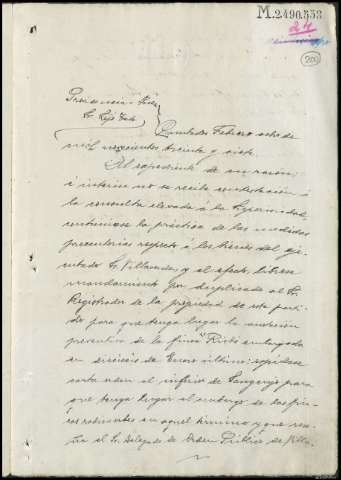 M.2.490.558
24
200
Providencia Juez
Sr. Rajo
Cambados Febrero ocho de
mil novecientos treinta y siete.
Al expediente de su razón;
é interin no se recibe contestación á
la consulta elevada á la Superioridad,
continúese la práctica de las medidas
precautorias respecto á los bienes del eje-
cutado Sr. Villaverde, y al efecto, líbrese
mandamiento por duplicado al Sr.
Registrador de la propiedad de este parti-
do para que tenga lugar la anotación
preventiva de la finca "Rial" embargada
en dieciseis de Enero último: expídase
carta orden al inferior de Sangenjo para
que tenga lugar el embargo de las fin-
cas radicantes en aquel término y que
el Sr. Delegado de Orden Público de Villa-